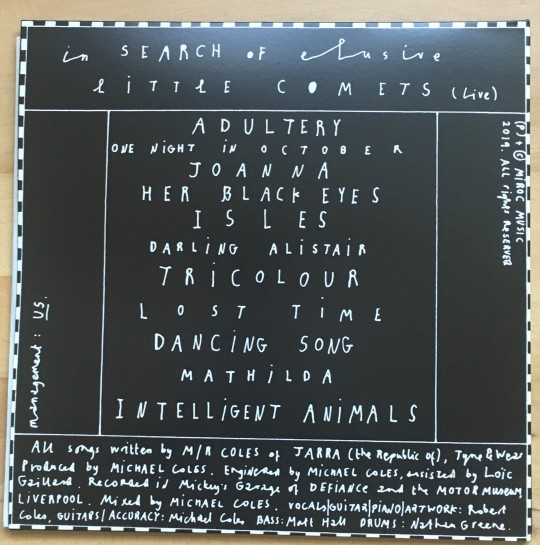 in SEARCH OF elusive
LITTLE COMETS (Live)
ADULTERY
ONE NIGHT IN OCTOBER
JOANNA
HER BLACK EYES
ISLES
DARLING ALISTAIR
TRICOLOUR
LOST TIME
DANCING SONG
MATHILDA
INTELLIGENT ANIMALS
(P) + © MIROC MUSIC
2019. ALL rights RESERVED
management: US.
All songs written by M/R COLES of JARRA (the Republic of), Tyne & Wear
Produced by MICHAEL COLES. Engineered by MICHAEL COLES, assisted by Loïc
Gaillard. Recorded in Mickey's Garage of DEFIANCE and the MOTOR MUSEUM,
LIVERPOOL. Mixed by MICHAEL COLES. VOCALS/GUITAR/PIANO/ARTWORK: Robert
Coles, GUITARS/ACCURACY: Michael Coles BASS: Matt Hall DRUMS: Nathan Greene.